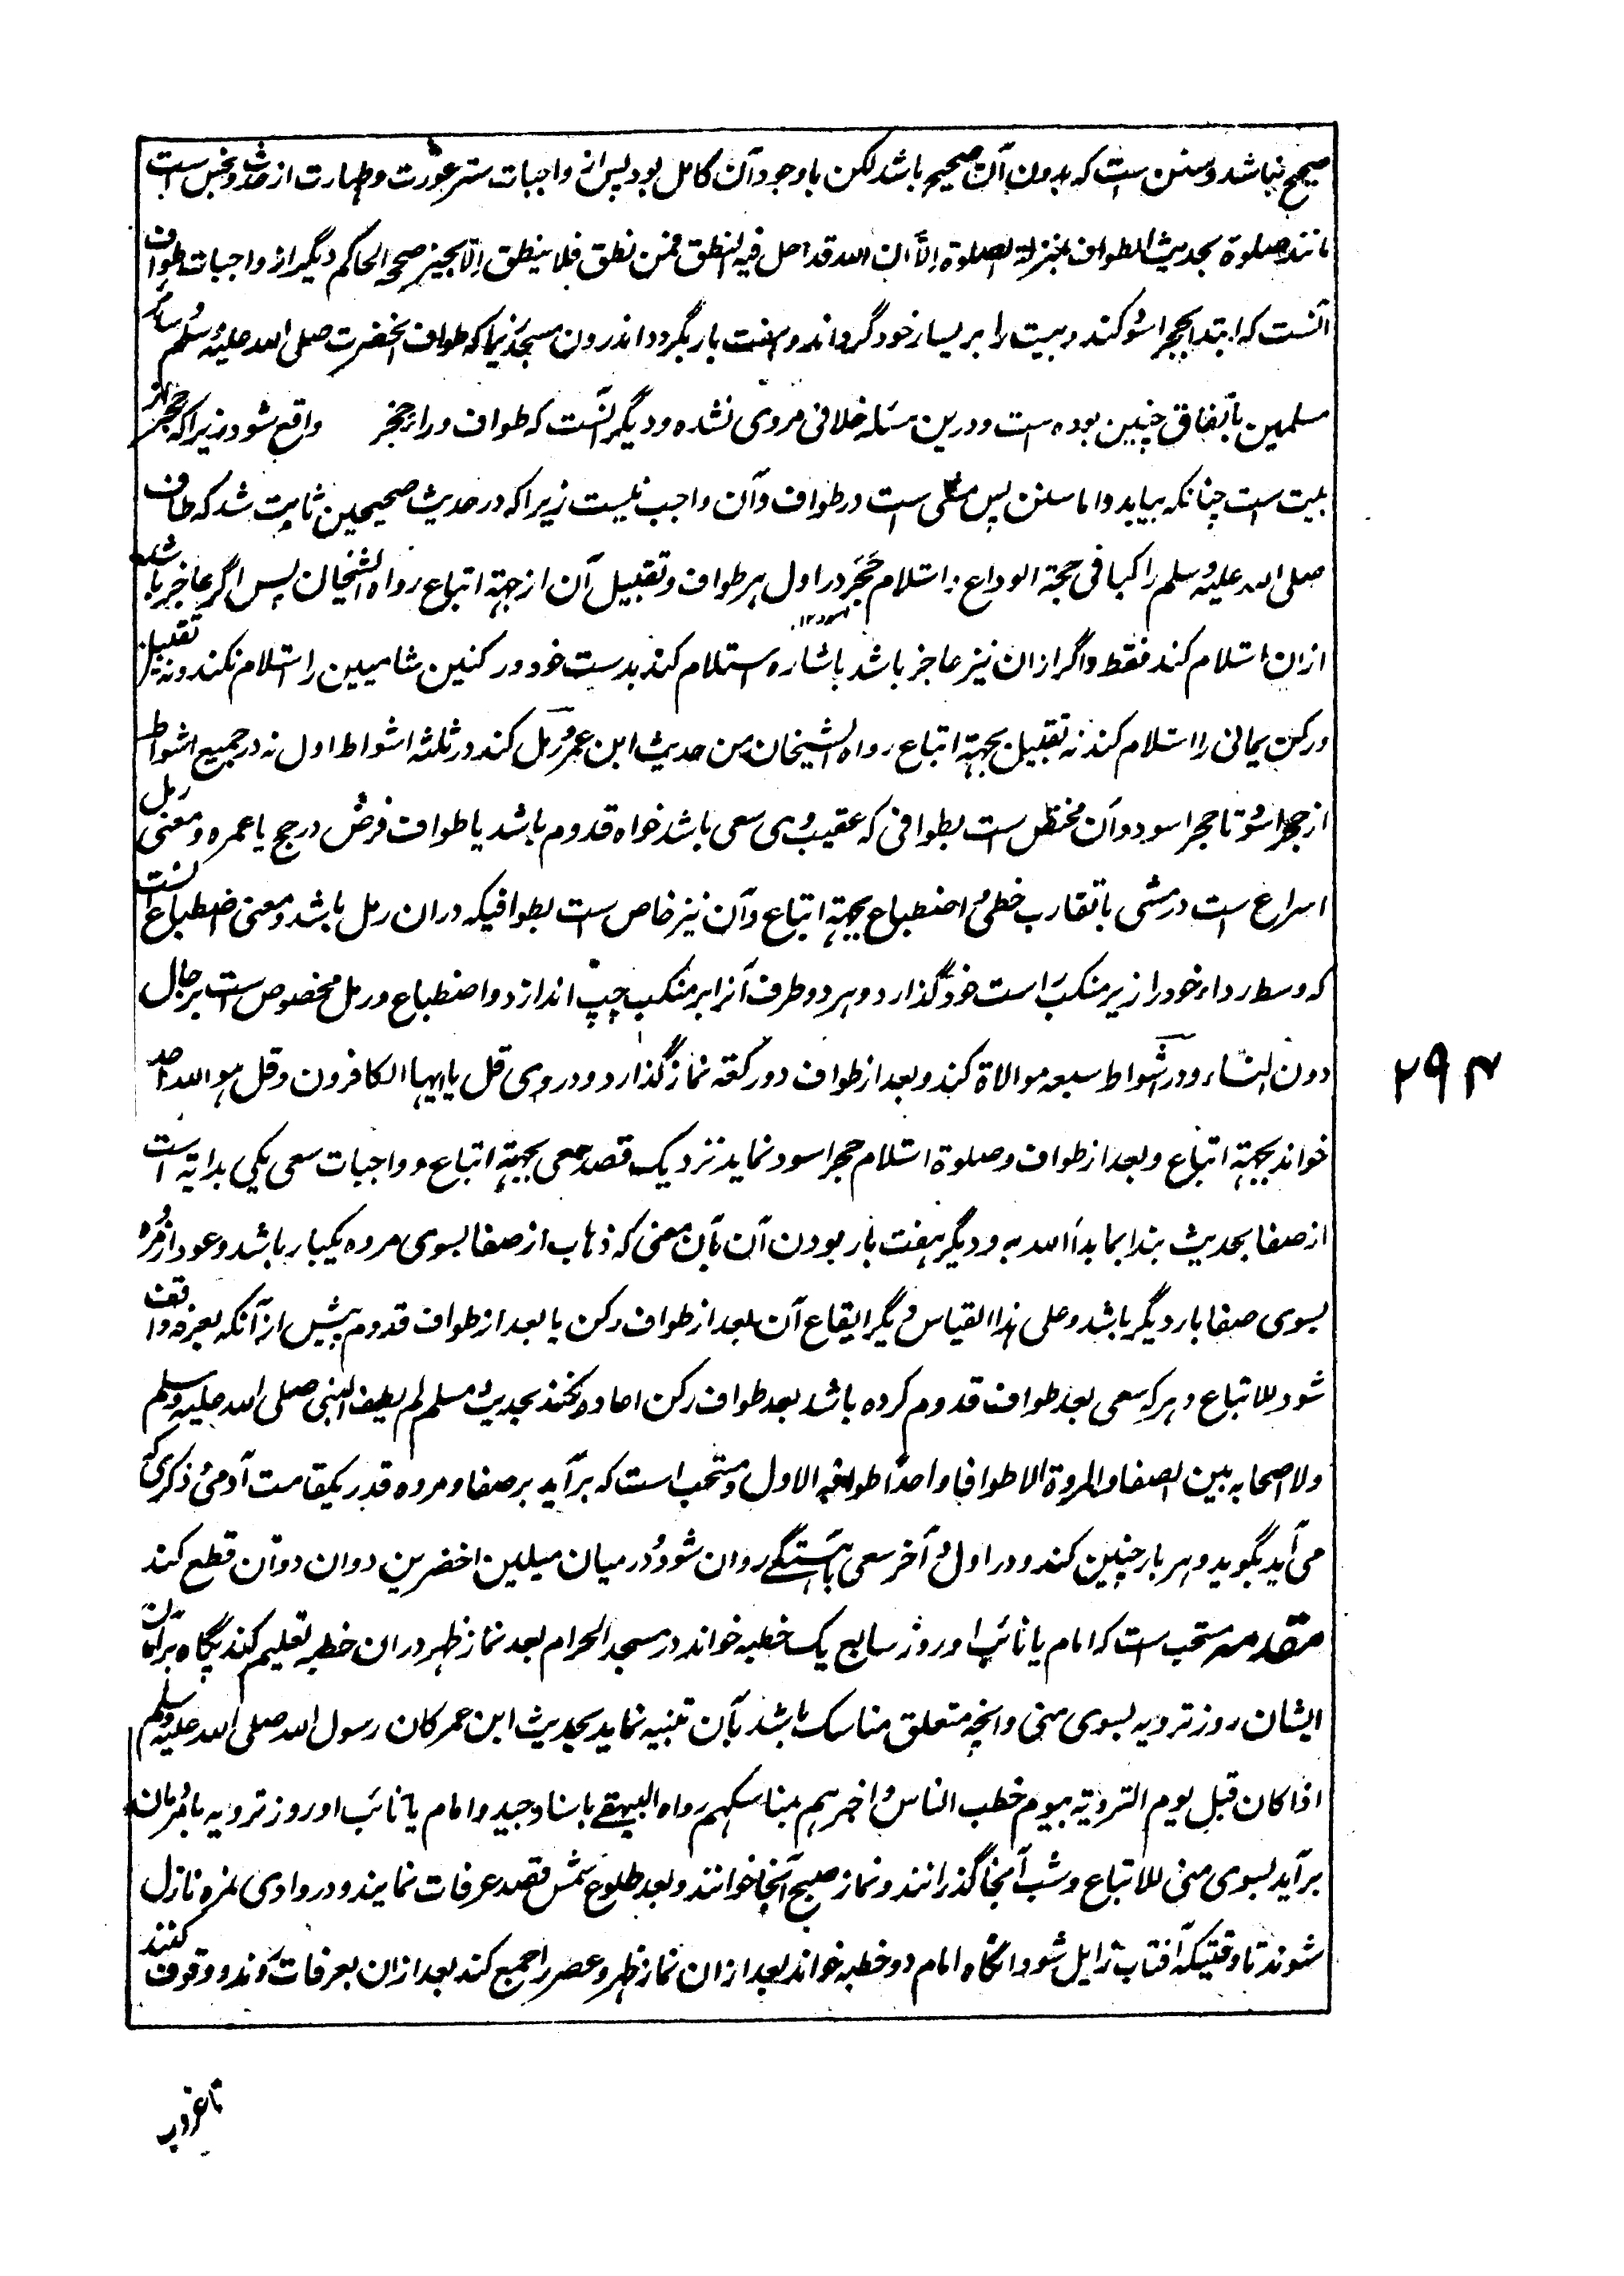 صحیح نباشد و سنن ست که بدون آن صحیح باشد لکن باوجود آن کامل بود پس از واجبات ستر عورت و طهارت از حدث و نجس است
مانند صلوة بحدیث الطواف بمنزلة الصلوة الّا ان الله قد احل فیه النطق فمن نطق فلا ینطق الّا بخیر صححه الحاکم دیگر از واجبات طواف
آنست که ابتدا بحجر اسود کند و بیت را بر یسار خود گرداند و هفت بار بگردد اندرون مسجد زیراکه طواف آنحضرت صلی الله علیه وسلم و سائر
مسلمین باتفاق چنین بوده ست و درین مسئله خلافی مروی نشده و دیگر آنست که طواف وراء حجر واقع شود زیراکه حجر از
بیت ست چنانکه بیاید و اما سنن پس مشی ست در طواف و آن واجب نیست زیراکه در حدیث صحیحین ثابت شد که طاف
صلی الله علیه وسلم راکبا فی حجة الوداع و استلام حَجَر در اول هر طواف و تقبیل آن از جهة اتباع رواه الشیخان پس اگر عاجز باشد
اسود ۱۲
ازان استلام کند فقط و اگر ازان نیز عاجز باشد باشاره استلام کند بدست خود و رکنین شامیین را استلام نکند و نه تقبیل
و رکن یمانی را استلام کند نه تقبیل بجهة اتباع رواه الشیخان من حدیث ابن عمر و رمل کند در ثلثه اشواط اول نه در جمیع اشواط
از حجر اسود تا حجر اسود و آن مختص ست بطوافی که عقیب وی سعی باشد خواه قدوم باشد یا طواف فرض در حج یا عمره و معنی رمل
اسراع ست در مشی با تقارب خطی و اضطباع بجهة اتباع و آن نیز خاص ست بطوافیکه دران رمل باشد و معنی اضطباع آنست
که وسط رداء خود را زیر منکب راست خود گذارد و هر دو طرف آنرا بر منکب چپ اندازد و اضطباع و رمل مخصوص است برجال
دون النساء و در اشواط سبعه موالاة کند و بعد از طواف دو رکعة نماز گذارد و در وی قل یا ایها الکافرون و قل هو الله احد
خواند بجهة اتباع و بعد از طواف و صلوة استلام حجر اسود نماید نزدیک قصد سعی بجهة اتباع و واجبات سعی یکی بدایة است
از صفا بحدیث نبدا بما بدا الله به و دیگر هفت بار بودن آن بآن معنی که ذهاب از صفا بسوی مروه یکبار باشد و عود از مروه
بسوی صفا بار دیگر باشد و علی هذا القیاس و دیگر ایقاع آن بعد از طواف رکن یا بعد از طواف قدوم پیش از آنکه بعرفه واقف
شود للاتباع و هر که سعی بعد طواف قدوم کرده باشد بعد طواف رکن اعاده نکند بحدیث مسلم لم یطف النبی صلی الله علیه وسلم
ولا اصحابه بین الصفا والمروة الا طوافا واحدًا طوافه الاول و مستحب است که برآید بر صفا و مروه قدر یکقامت آدمی و ذکری که
می آید بگوید و هر بار چنین کند و در اول و آخر سعی بآهستگی روان شود و در میان میلین اخضرین دوان دوان قطع کند
مقدمه مستحب ست که امام یا نائب او روز سابع یک خطبه خواند در مسجد الحرام بعد نماز ظهر دران خطبه تعلیم کند پگاه برآمدن
ایشان روز ترویه بسوی منی و آنچه متعلق مناسک باشد بآن تنبیه نماید بحدیث ابن عمر کان رسول الله صلی الله علیه وسلم
اذا کان قبل یوم الترویة بیوم خطب الناس و اخبرهم بمناسکهم رواه البیهقے باسناد جید و امام یا نائب او روز ترویه با مردمان
برآید بسوی منی للاتباع و شب آنجا گذرانند و نماز صبح آنجا خوانند و بعد طلوع شمس قصد عرفات نمایند و در وادی نمره نازل
شوند تا وقتیکه آفتاب زایل شود انگاه امام دو خطبه خواند بعد ازان نماز ظهر و عصر را جمع کند بعد ازان بعرفات آیند و وقوف کنند
۲۹۴
تا غروب